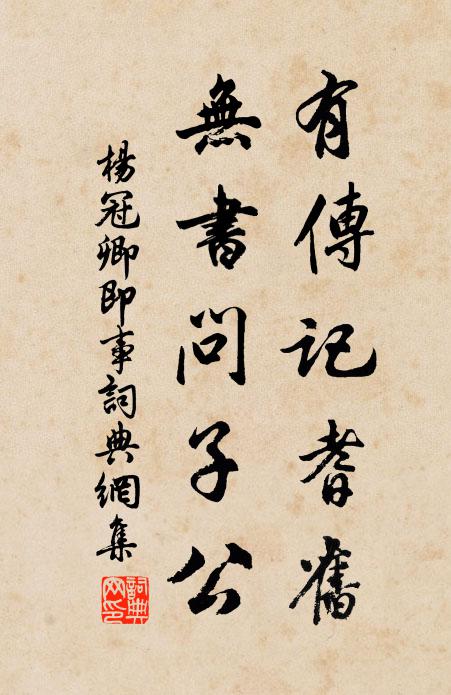 有傳記耆舊
無書問子公
楊冠卿即事詞典網集
詞典網印